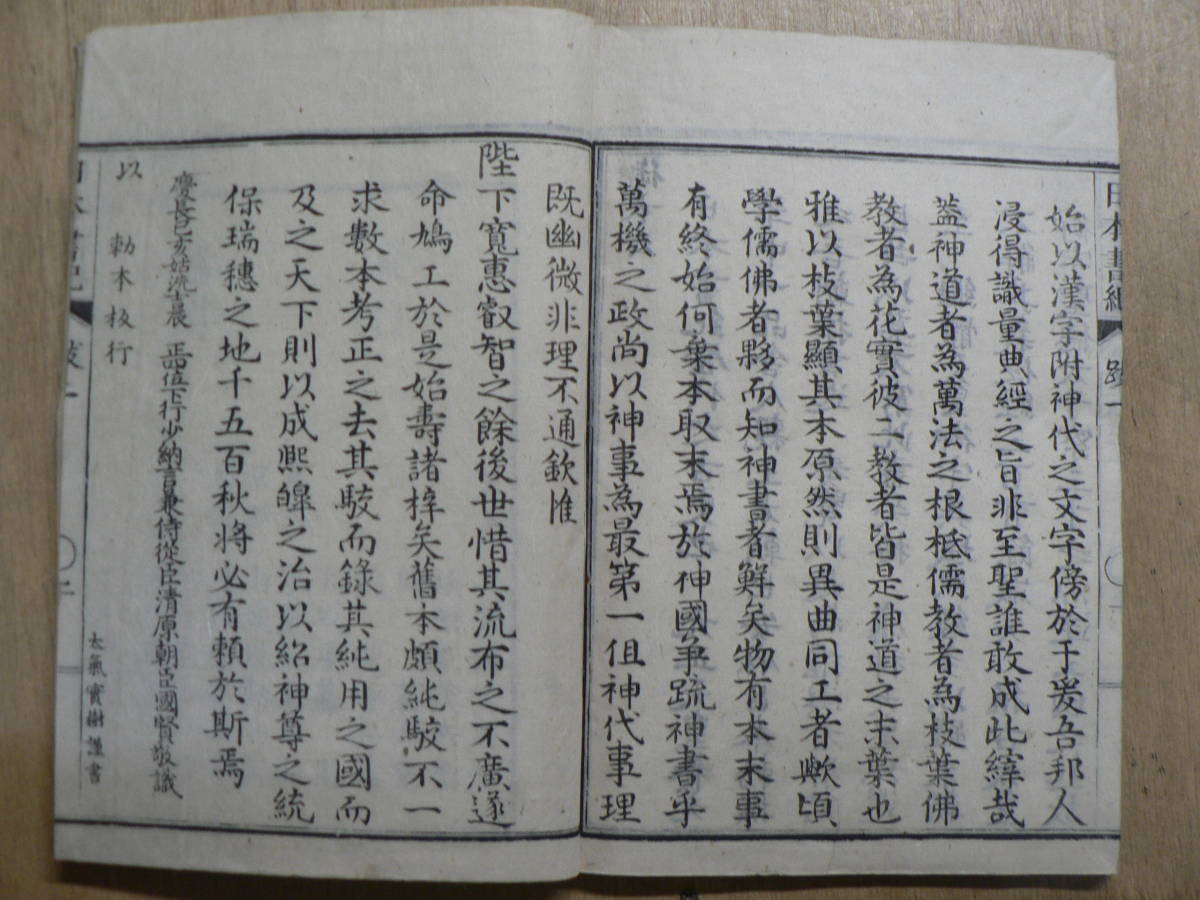 日本書紀
跋一
始以漢字附神代之文字傍於于爰吾邦人
浸得識量典經之旨非至聖誰敢成此繹哉
葢神道者為萬法之根柢儒教者為枝葉佛
教者為花實彼二教者皆是神道之末葉也
雅以枝葉顯其本原然則異曲同工者歟頃
學儒佛者夥而知神書者鮮矣物有本末事
有終始何棄本取末焉於神國爭疏神書乎
萬機之政尚以神事為最第一伹神代事理
既幽微非理不通欽惟
陛下寬惠叡智之餘後世惜其流布之不廣遂
命鳩工於是始壽諸梓矣舊本頗純駁不一
求數本考正之去其駁而錄其純用之國而
及之天下則以成熙皞之治以紹神尊之統
保瑞穗之地千五百秋將必有賴於斯焉
慶長己亥姑洗吉辰 正四位下行少納言兼侍從臣清原朝臣國賢敬識
以 勅本板行
太氣實樹謹書